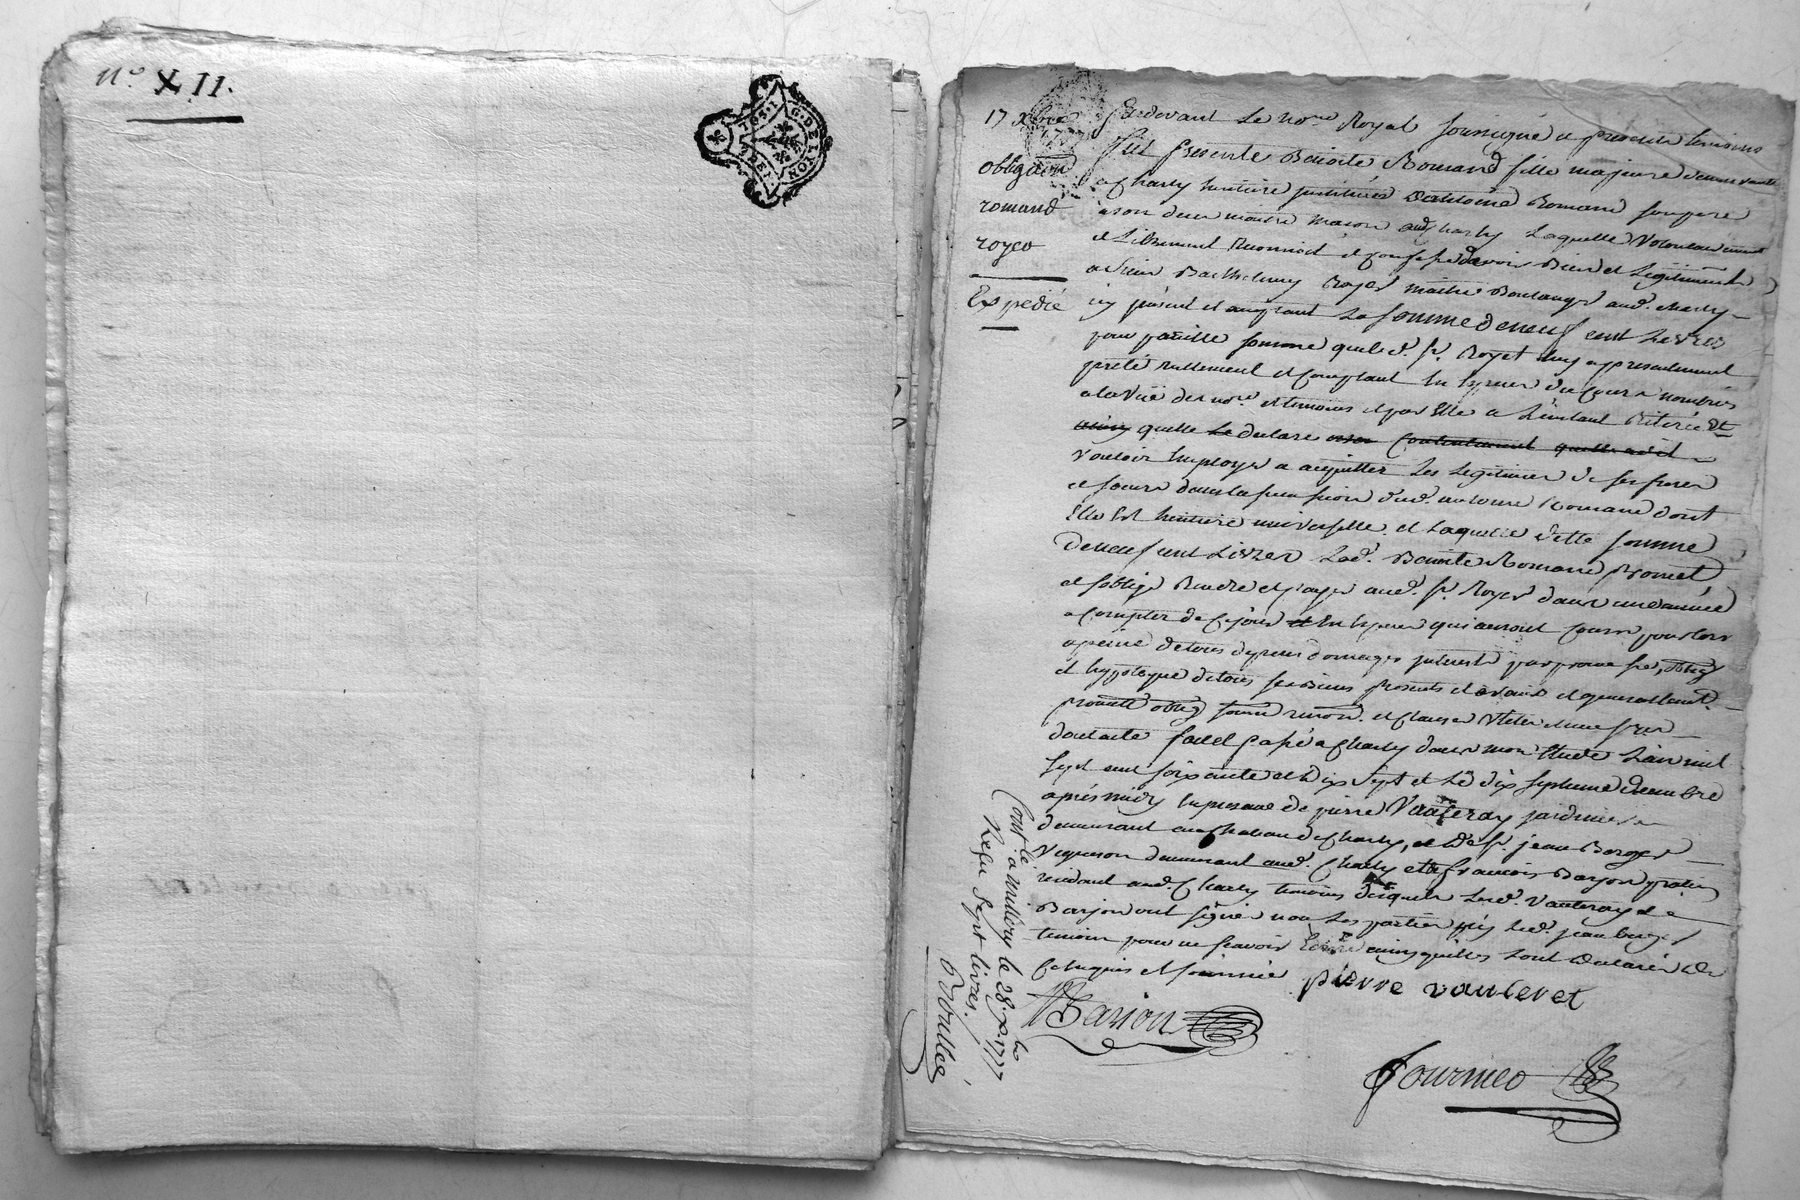 n.° XII.
G. DE LYON
17 xbre
obligaõn
romand
royer
Expedié
Pardevant Le no.re Royal soussigné et presents temoins
fut presente Benoite Romand fille majeure demeurante
a Charly heritiere instituée d'antoine Romand son pere
a son deces maitre masson aud. Charly Laquelle volontairement
et Librement reconnoit et confesse devoir Bien et Legitimement
a sieur Barthelemy Royer maitre Boulanger aud. Charly
icy présent et acceptant La somme de neuf cent Livres
pour pareille somme que led. Sr. Royer luy a presentement
preté réellement et comptant en especes du cours nombrées
a la vüe des no.re et temoins et par Elle a L'instant retirée et
quelle declare
vouloir Employer a acquitter Les Legitimes de ses freres
et soeurs dans la succession dud. antoine Romand dont
Elle Est heritiere universelle. et Laquelle ditte somme
de neuf cent Livres Lad. Benoite Romand promet
et s'oblige Rendre et payer aud. Sr. Royer dans une année
a compter de ce jour en especes qui auront cours pour lors
a peine de tous depens domages interests par promesse, oblig.
et hypoteque de tous ses Biens presents et avenir et generalement
promette oblig. soum. renon. et clauses
dont acte fait et passé a Charly dans mon Etude L'an mil
sept cent soixante et dix sept et Le dix septieme decembre
après midy En presence de pierre Vauteray jardinier
demeurant au chateau de Charly, et de Sr. jean Berger
Vigneron demeurant aud. Charly et de francois Barjon praticien
residant aud. Charly temoins desquels Led. Vauteray et
Barjon ont signé non Les parties ny led. jean Berger
temoin pour ne scavoir Ecrire ainsy quilles l'ont declaré de
ce enquis et sommés
pierre vauteret
Barjon
fournier
Cont.lé a millery le 28. xbre 1777
Reçu sept livres.